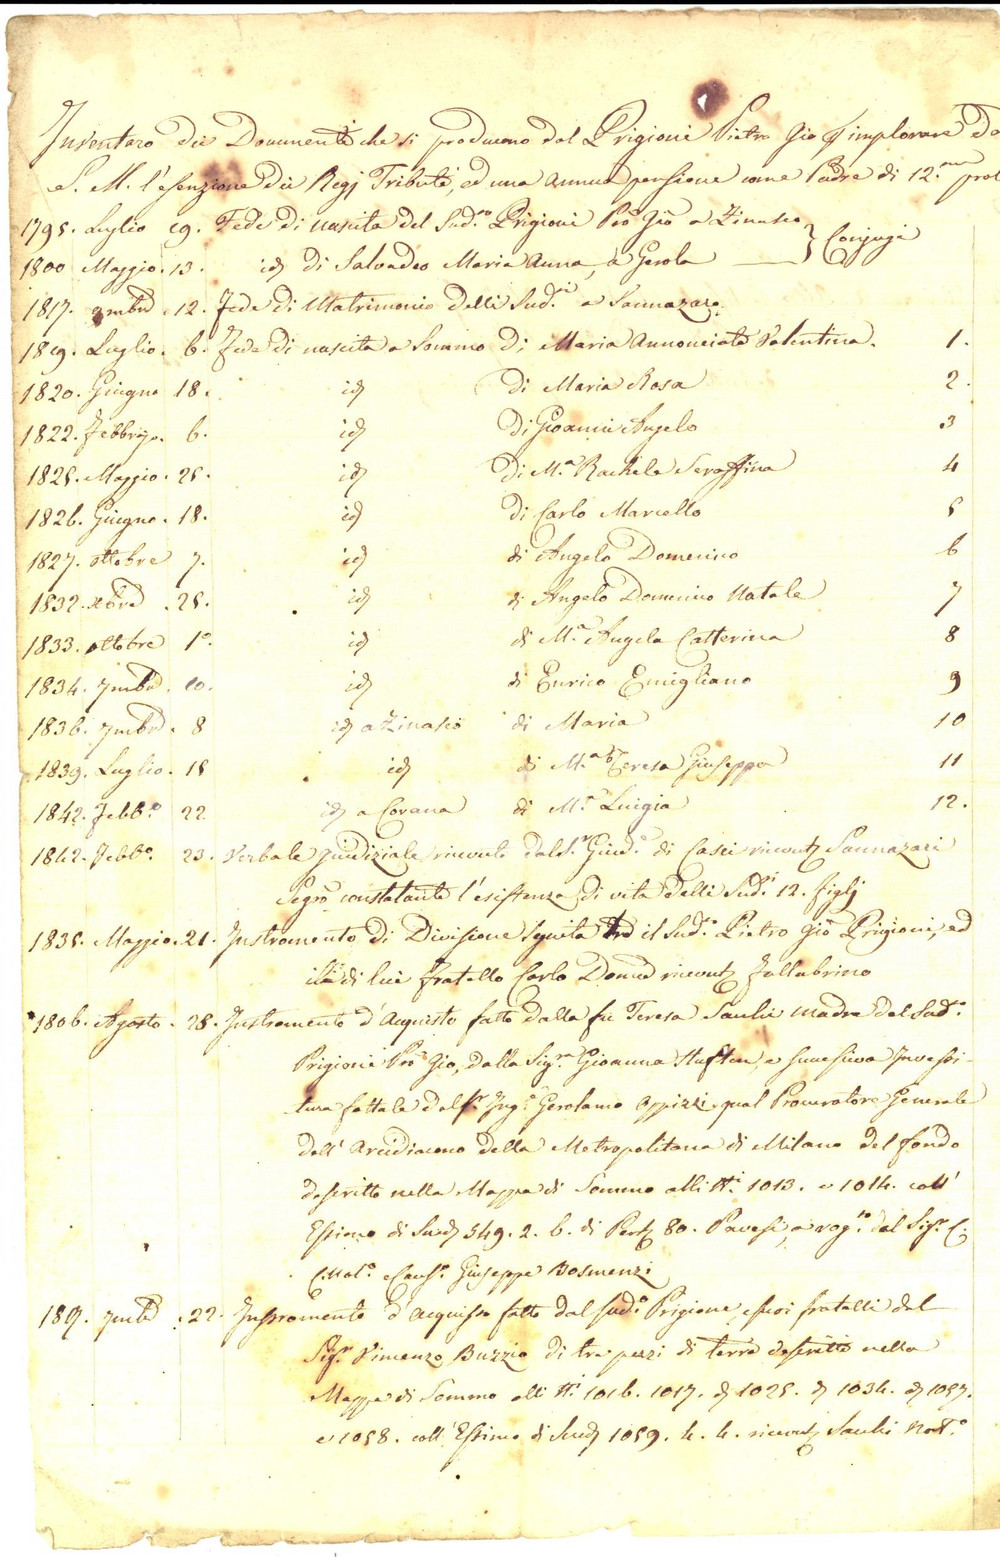 Inventaro dei Documenti che si producono dal Prigioni Pietro Gio p implorare Da
S. M. l'esenzione dei Regj Tributi, ed una annua pensione come Padre di 12.
1795. Luglio 19. Fede di nascita del Sud.to Prigioni Pro Gio a Zinasco } Conjugi
1800 Maggio. 13. id di Salvadeo Maria Anna, a Gerola
1817. 9mbre 12. Fede di Matrimonio delli Sud.ti a Sannazaro
1819. Luglio. 6. Fede di nascita a Sommo di Maria Annonciata Valentina. 1.
1820. Giugno 18. id di Maria Rosa 2.
1822. Febbrjo. 6. id Di Gioanni Angelo 3
1825. Maggio. 25. id Di M.a Rachele Seraffina 4
1826. Giugno. 18. id di Carlo Marcello 5
1827. ottobre 7. id di Angelo Domenico 6
1832. xbre 25. id di Angelo Domenico Natale 7
1833. ottobre 1.o id di M.a Angela Catterina 8
1834. 7mbre. 10. id di Enrico Emigliano 9
1836. 7mbre. 8 id a Zinasco di Maria 10
1839. Luglio. 15 id di M.a Teresa Giuseppa 11
1842. Febb.o 22 id a Corana di M.a Luigia 12.
1842. Febb.o 23. Verbale giudiziale ricevuto dal S.r Giud.e di Casei Sannazari
Segro constatante l'esistenza di vita delli Sud.ti 12. figlj
1835. Maggio. 21. Instromento di Divisione seguita tra il Sud.to Pietro Gio Prigioni, ed
il di lui fratello Carlo Dom.co Fallabrino
1806. Agosto. 28. Instromento d'Acquisto fatto dalla fu Teresa Saulù madre del Sud.o
Prigioni Pro Gio, dalla Sig.ra Gioanna e successiva Investi-
tura fattale dal Sr Ing.e Gerolamo Appizzi qual Procuratore Generale
dell' Arcidiacono della Metropolitana di Milano del fondo
descritto nella Mappa di Sommo alli N.i 1013. e 1014. coll'
Estimo di Scudi 349. 2. 6. di Pert. 80. Pavesi, a rog.to del Sig.r C.
Not.o Caus.o Giuseppe Bosmenzi
22. Instromento d'acquisto fatto dal Sud.o Prigione, e suoi fratelli dal
Sig.r Vincenzo Buzzio di tre pezzi di terra descritti nella
Mappa di Sommo alli N.i 1016. 1017. 1025. 1034. 1057.
e 1058. coll' Estimo di Scudi 1059. 4. 4. Saulù Not.o